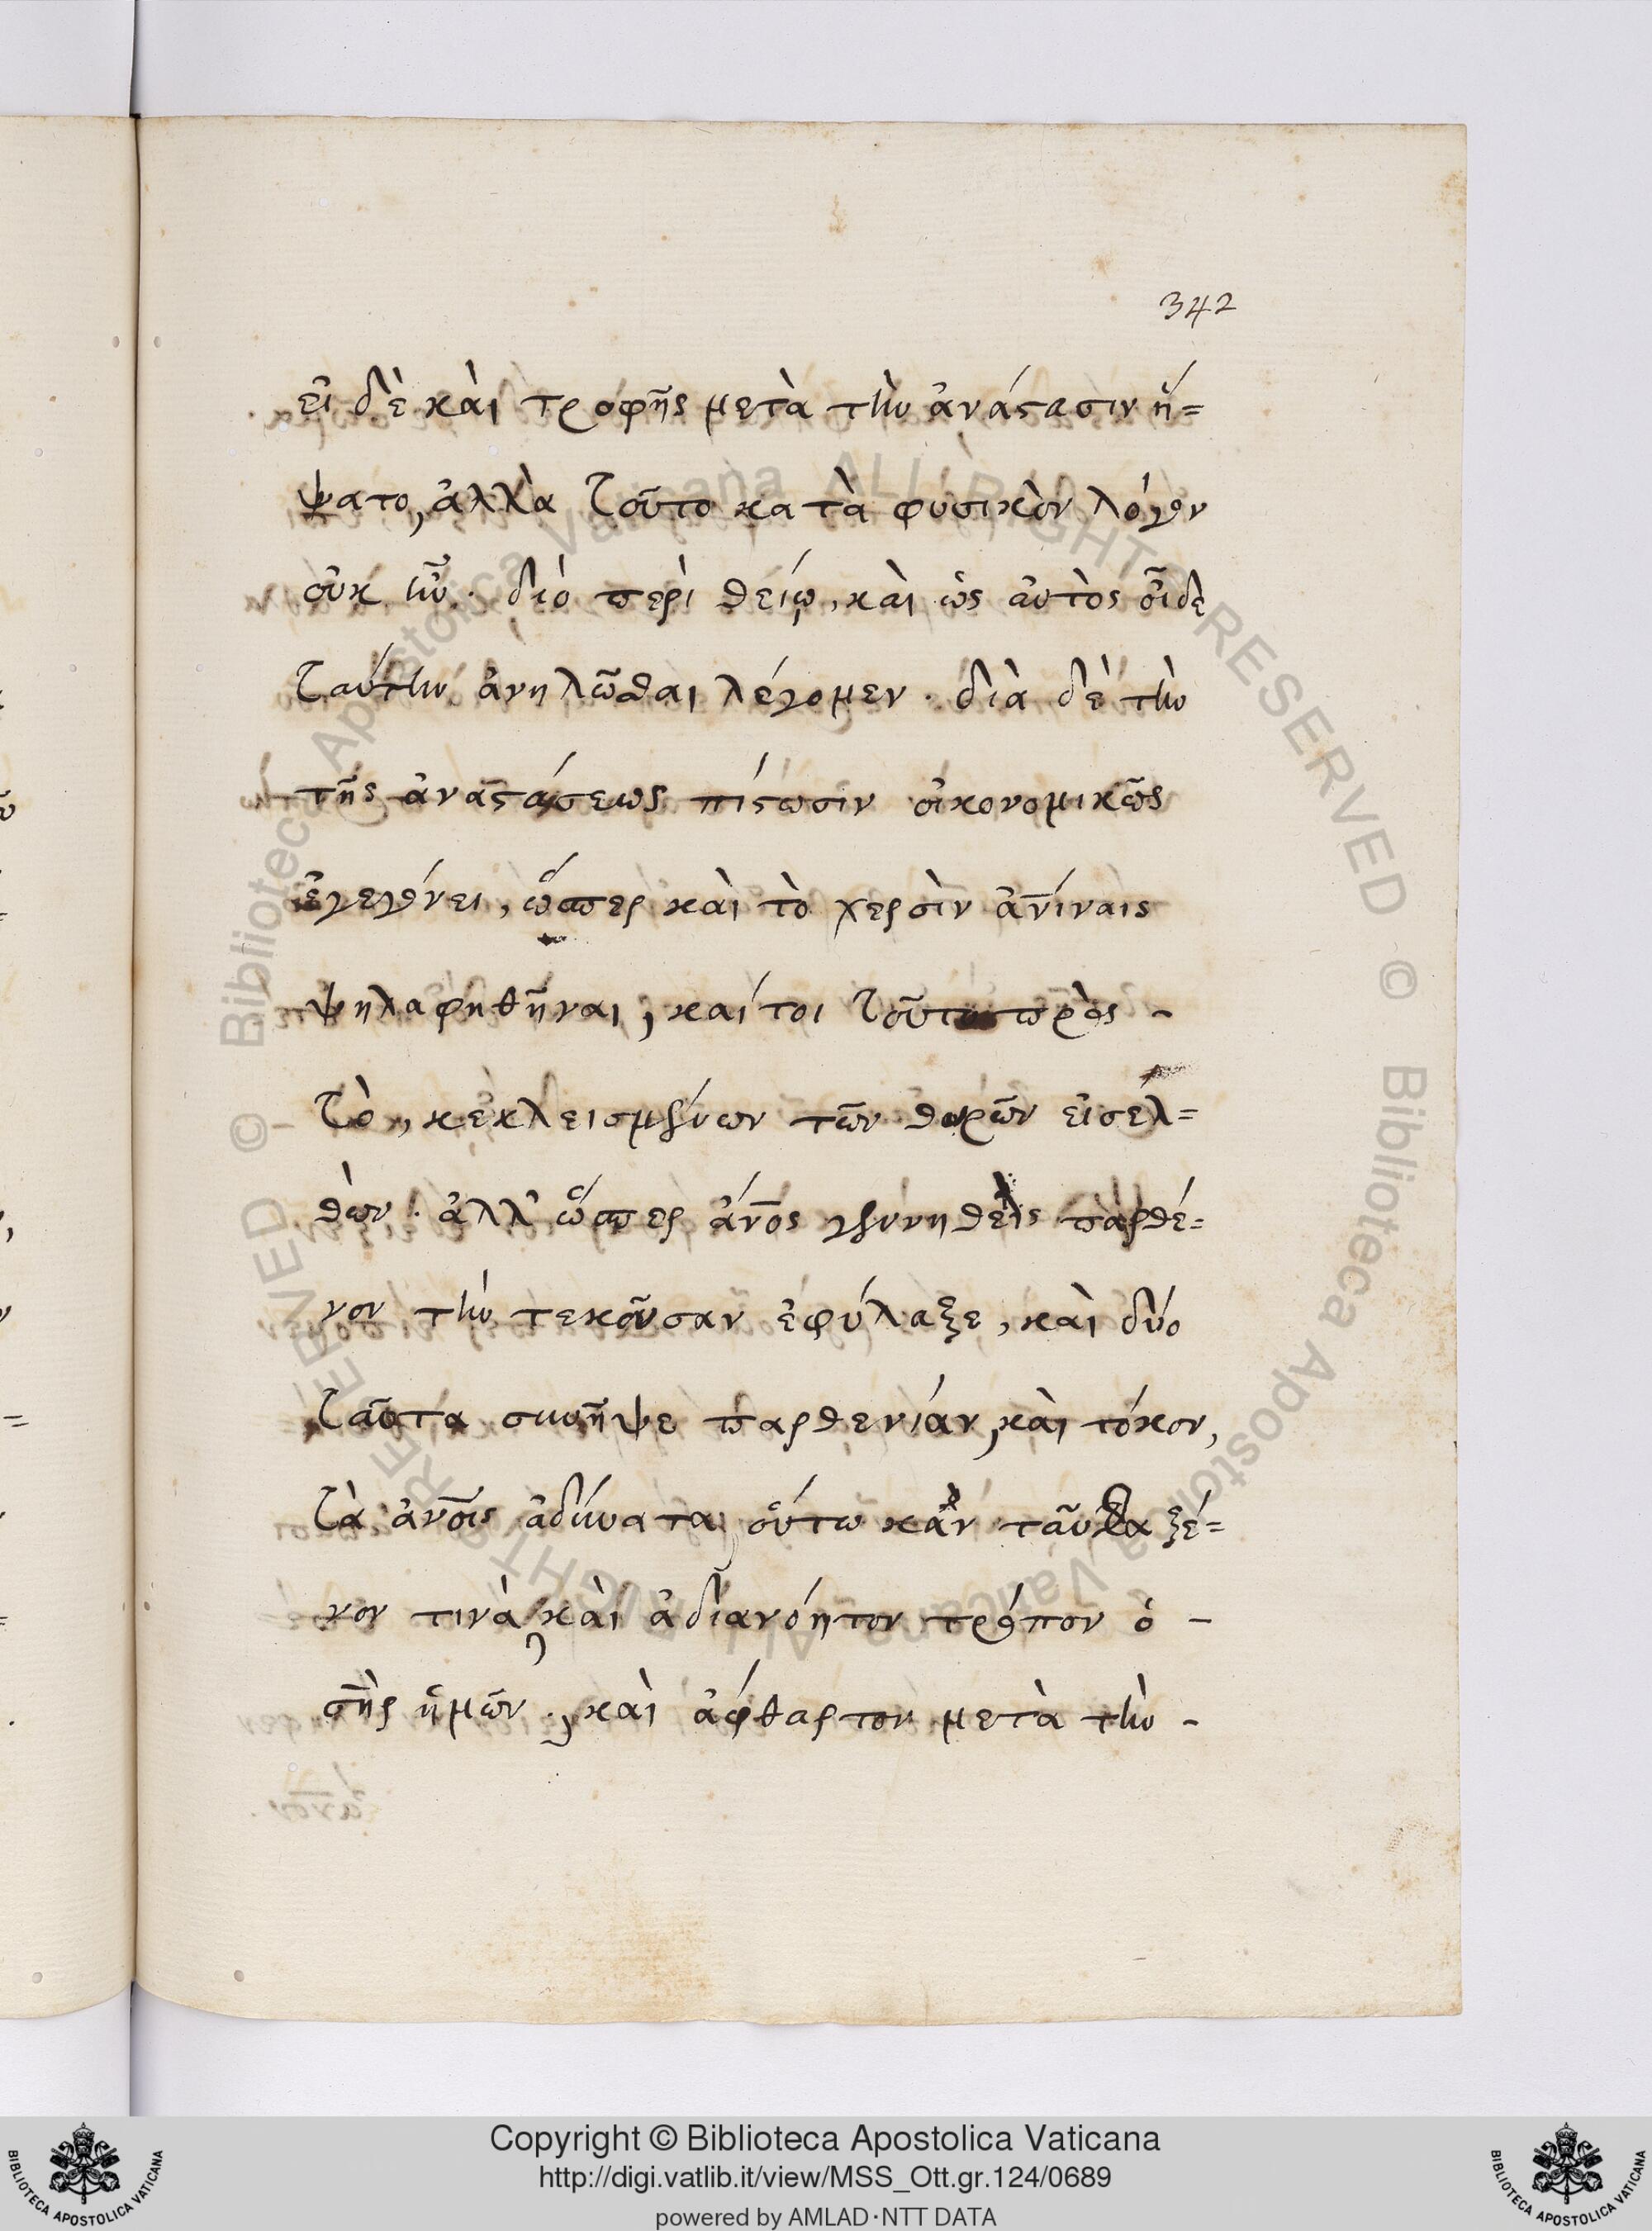 342
εἰ δὲ καὶ τροφῆς μετὰ τὴν ἀνάστασιν ἥ=
ψατο, ἀλλὰ τοῦτο κατὰ φύσικὸν λόγον
οὐκ ἦν. διό περὶ θείῳ, καὶ ὡς αὐτὸς οἶδε
ταύτην ἀνηλῶσθαι λέγομεν. διὰ δὲ τὴν
τῆς ἀναστάσεως πίστωσιν οἰκονομικῶς
ἐγεγόνει, ὥσπερ καὶ τὸ χερσὶν ἀνίναις
ψηλαφηθῆναι, καίτοι τοῦτο πρὸς -
τὸ, κεκλεισμένων τῶν θυρῶν εἰσελ=
θὼν. ἀλλ' ὥσπερ ἄνος γεννηθεὶς παρθέ=
νον τὴν τεκοῦσαν ἐφύλαξε, καὶ δύο
ταῦτα συνῆψε παρθενίαν, καὶ τόκον,
τὰ ἀνοις ἀδύνατα, οὕτω κἂν ταῦθα ξέ=
νον τινὰ, καὶ ἀδιανόητον τρόπον ὁ -
σηὶς ἡμῶν., καὶ ἄφθαρτον μετὰ τὴν -
Copyright © Biblioteca Apostolica Vaticana
http://digi.vatlib.it/view/MSS_Ott.gr.124/0689
powered by AMLAD·NTT DATA
BIBLIOTECA APOSTOLICA VATICANA
BIBLIOTECA APOSTOLICA VATICANA
© Biblioteca Apostolica Vaticana ALL RIGHTS RESERVED © Biblioteca Apostolica Vaticana ALL RIGHTS RESERVED